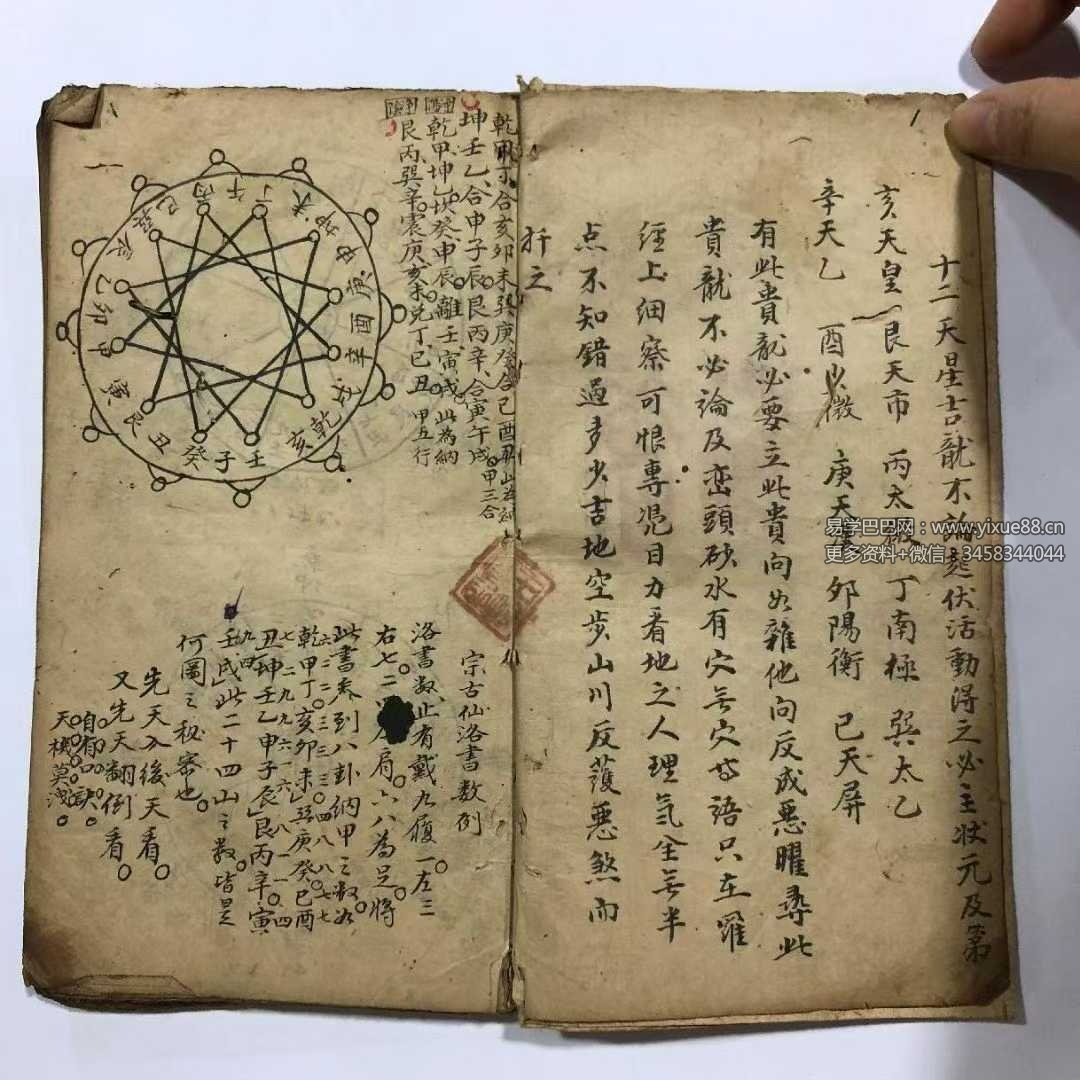 十二天星吉龍不論起伏活動得之必主狀元及第
亥天皇 艮天市 丙太微 丁南極 巽太乙
辛天乙 酉少微 庚天漢 卯陽衡 巳天屏
有此貴龍必要立此貴向如雜他向反成惡曜尋此
貴龍不必論及巒頭砂水有穴無穴等語只在羅
經上細察可恨專凭目力看地之人理氣全無半
点不知錯過多少吉地空步山川反護惡煞而
扦之
乾甲丁合亥卯未巽庚癸合巳酉丑
坤壬乙合申子辰艮丙辛合寅午戌甲三合
乾甲坤乙坎癸申辰離壬寅戌此為納
艮丙巽辛震庚亥未兌丁巳丑甲五行
丙午丁未坤申庚酉辛戌乾亥壬子癸丑艮寅甲卯乙辰巽巳
宗古仙洛書數例
洛書数止有戴九履一左三
右七二 肩六八為足將
此書表到八卦納甲之数如
乾甲丁亥卯未巽庚癸巳酉
丑坤壬乙申子辰艮丙辛寅
此二十四山之数皆是
何圖之秘密也
先天入後天看
又先天翻倒看
自有口訣
天機莫洩
易学巴巴网：www.yixue88.cn
更多资料+微信：3458344044